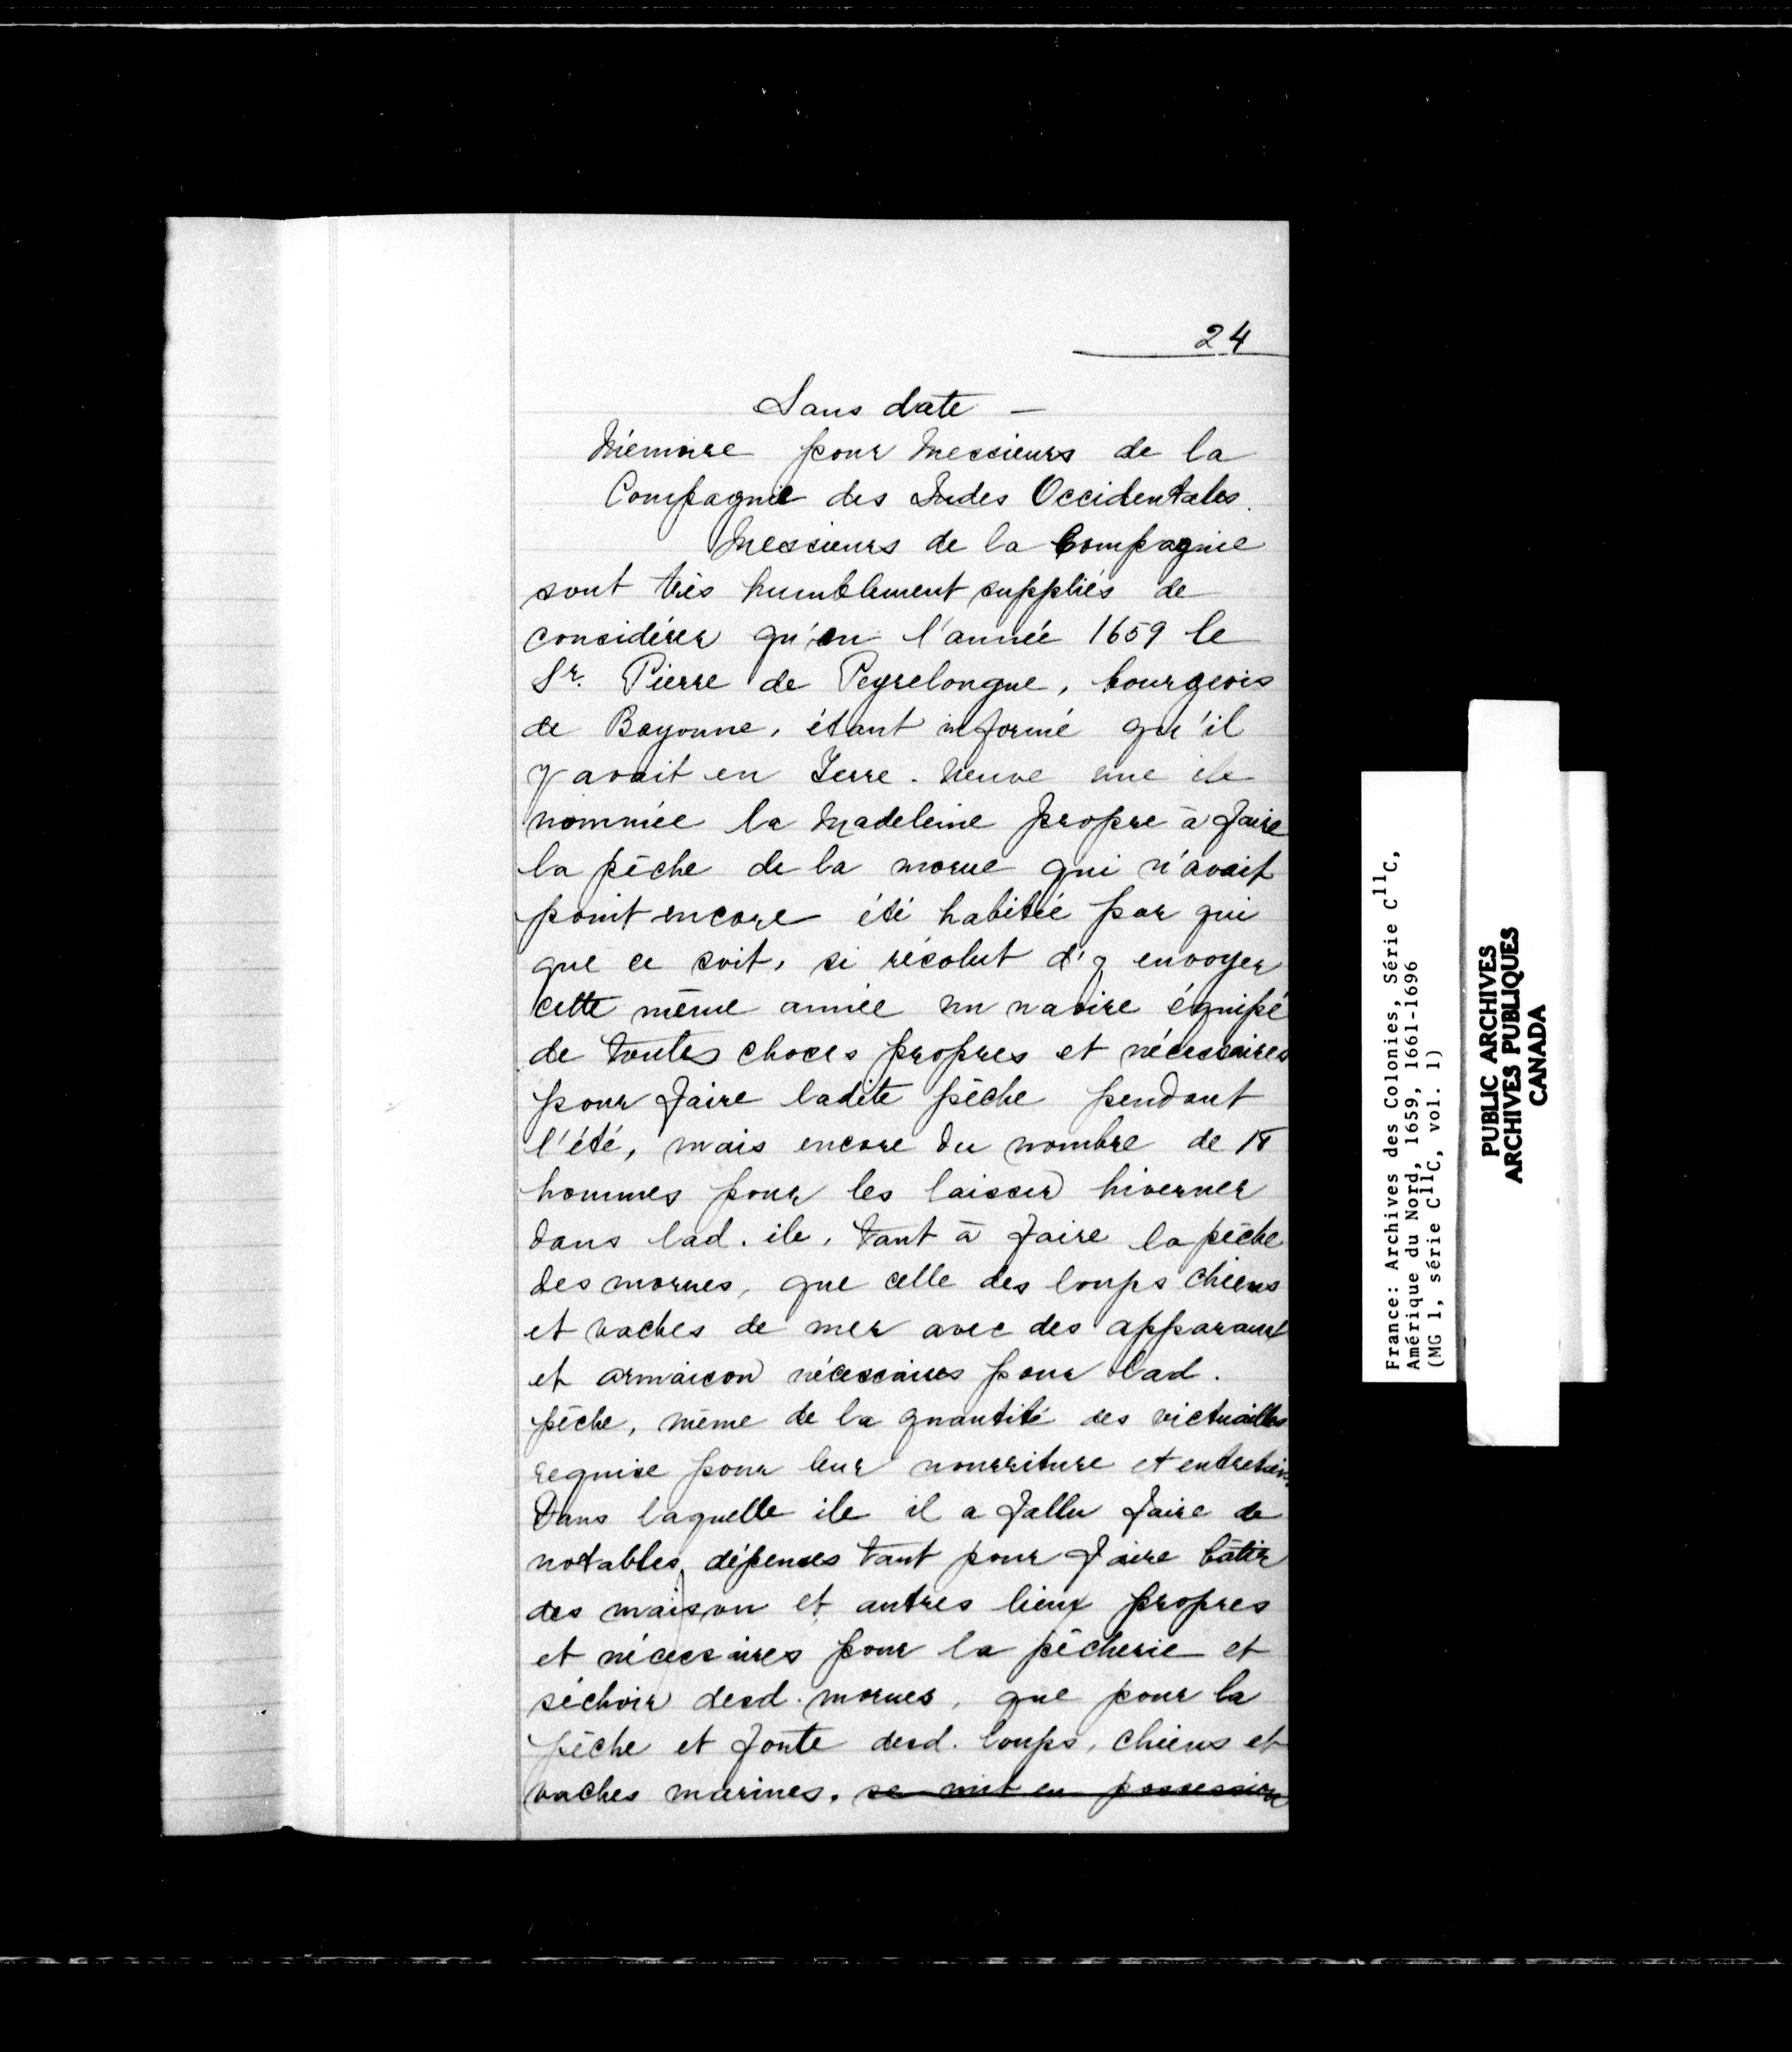 24
Sans date —
Mémoire pour Messieurs de la
Compagnie des Indes Occidentales.
Messieurs de la Compagnie
sont très humblement suppliés de
considérer qu'en l'année 1659 le
Sr. Pierre de Peyrelongue, bourgeois
de Bayonne, étant informé qu'il
y avait en Terre-Neuve une ile
nommée la Madeleine propre à faire
la pêche de la morue qui n'avait
point encore été habitée par qui
que ce soit, se résolut d'y envoyer
cette même année un navire équipé
de toutes choses propres et nécessaires
pour faire ladite pêche pendant
l'été, mais encore du nombre de 18
hommes pour les laisser hiverner
dans lad. ile, tant à faire la pêche
des morues, que celle des loups chiens
et vaches de mer avec des apparaux
et armaison nécessaires pour lad.
pêche, même de la quantité des victuailles
requise pour leur nourriture et entretien.
Dans laquelle ile il a fallu faire de
notables dépenses tant pour faire bâtir
des maison et autres lieux propres
et nécessaires pour la pêcherie et
séchoir desd. morues, que pour la
pêche et fonte desd. loups, chiens et
vaches marines. se mit en possession
France: Archives des Colonies, Série C11C,
Amérique du Nord, 1659, 1661-1696
(MG 1, série C11C, vol. 1)
PUBLIC ARCHIVES
ARCHIVES PUBLIQUES
CANADA